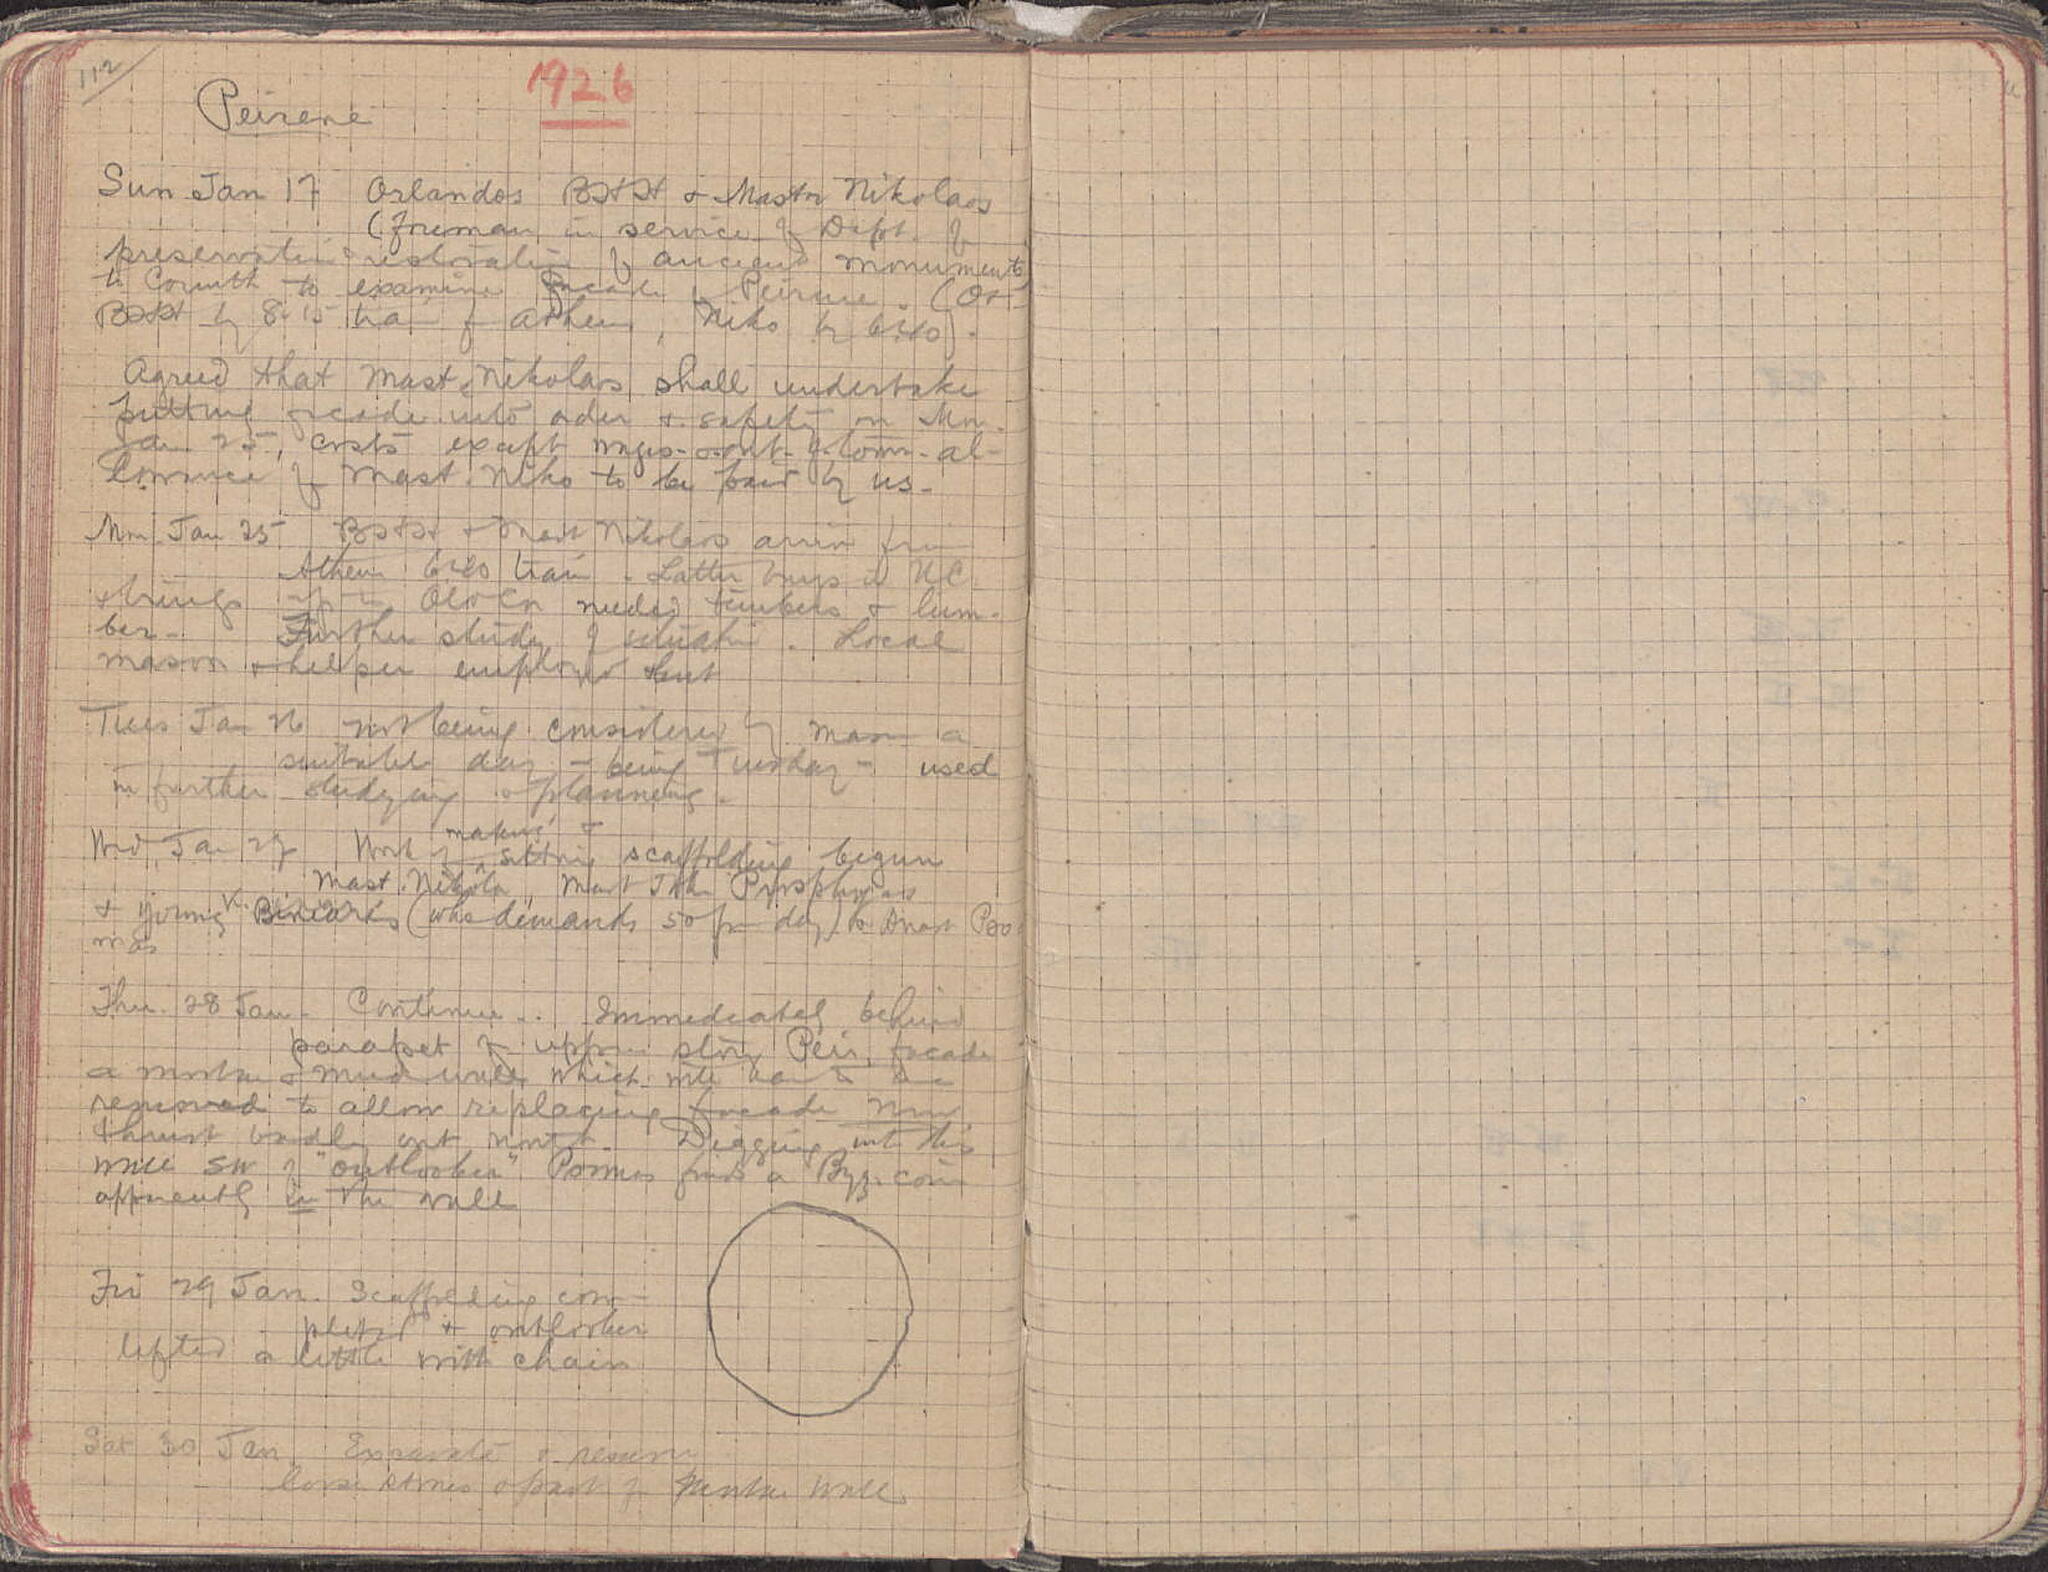 112
1926
Peirene
Sun Jan 17 Orlandos BHH & Mastr Nikolaos
(foreman in service of Dept. of
preservation & restoration of ancient monuments
to Corinth to examine facade of Peirene. (Or +
BHH by 8:15 train fr Athens, Niko by 6:40).
Agreed that Mast. Nikolaos shall undertake
putting facade into order & safety on Mon.
Jan 25, costs except wages out of town al-
lowance of Mast. Niko to be paid by us.
Mon Jan 25 BHH & Mast Nikolaos arrive from
Athens 6:40 train. Latter buys in N.C.
& brings up to Old Cor needed timbers & lum-
ber. Further study of situation. Local
mason & helper employed
Tues Jan 26 not being considered by mason a
suitable day - being Tuesday - used
in further studying & planning.
Wed, Jan 27 Work of making & setting scaffolding begun
Mast. Nikola, Mast
& young (who demands 50 per day)
Thu. 28 Jan. Continue.. Immediately behind
parapet of upper story Peir. facade
a mortar & mud wall which will have to be
removed to allow replacing facade now
thrust badly out north. Digging into this
wall SW of "outlooker" Pomas finds a Byz. coin
apparently in the wall
Fri 29 Jan. Scaffolding com-
pleted & outlooker
lifted a little with chain
Sat 30 Jan Excavate & remove
loose stones & part of mortar wall